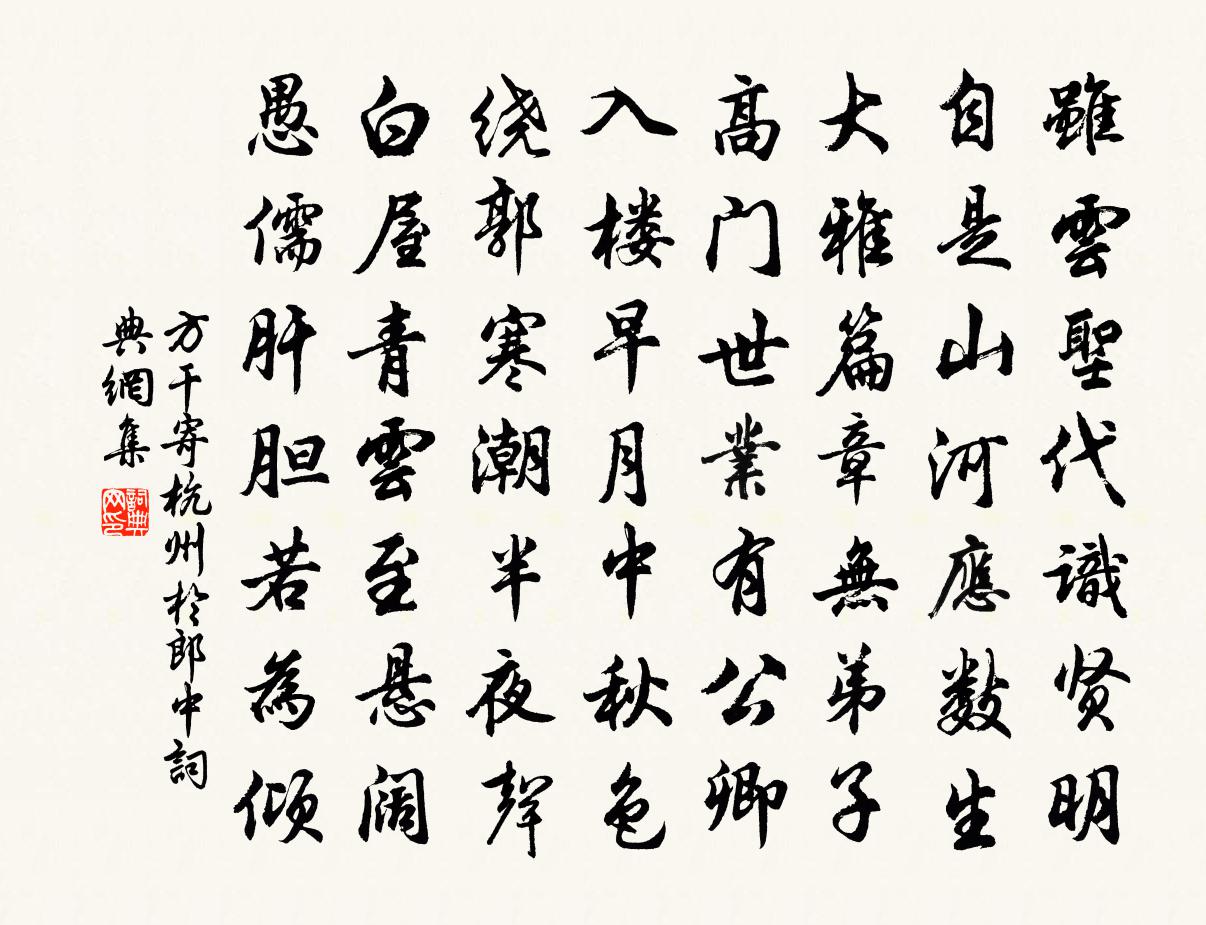 雖雲聖代識贤明
自是山河應數生
大雅篇章無弟子
高门世業有公卿
入楼早月中秋色
绕郭寒潮半夜聲
白屋青雲至悬阔
愚儒肝胆若為倾
方干寄杭州於郎中詞
典網集
詞典
网印